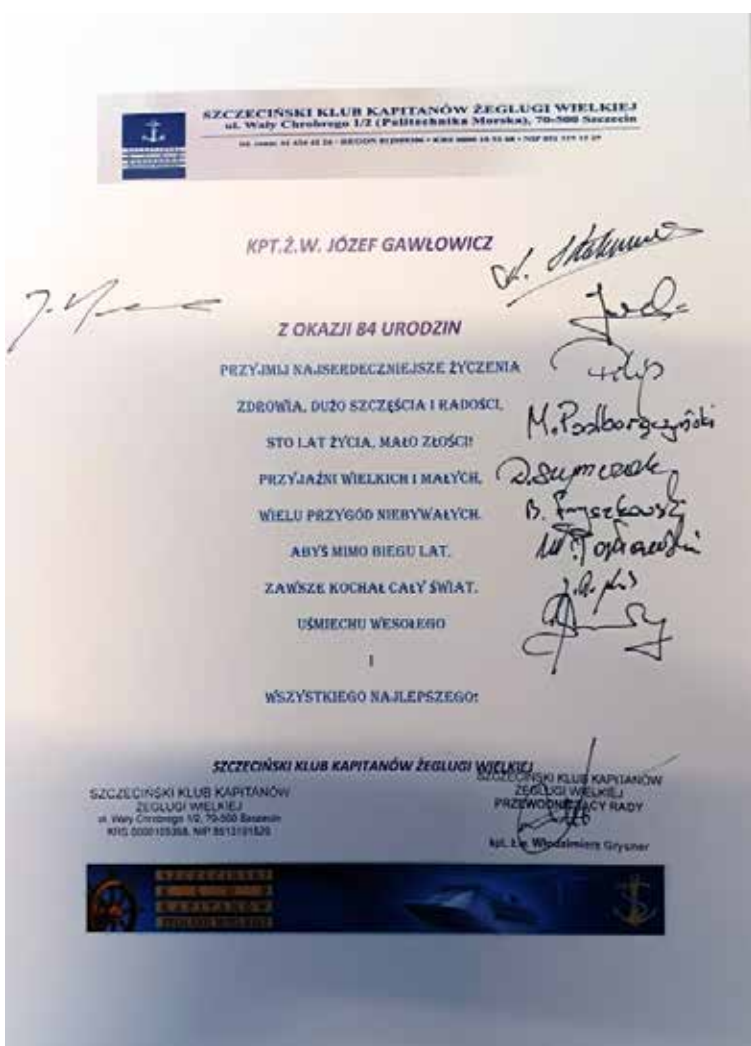 SZCZECIŃSKI KLUB KAPITANÓW ŻEGLUGI WIELKIEJ
ul. Wały Chrobrego 1/2 (Politechnika Morska), 70-500 Szczecin
KPT.Ż.W. JÓZEF GAWŁOWICZ
Z OKAZJI 84 URODZIN
PRZYJMIJ NAJSERDECZNIEJSZE ŻYCZENIA
ZDROWIA, DUŻO SZCZĘŚCIA I RADOŚCI,
STO LAT ŻYCIA, MAŁO ZŁOŚCI!
PRZYJAŹNI WIELKICH I MAŁYCH,
M. Podborączyński
WIELU PRZYGÓD NIEBYWAŁYCH.
D. Szymczak
B. Fryszkowski
ABYŚ MIMO BIEGU LAT,
ZAWSZE KOCHAŁ CAŁY ŚWIAT.
UŚMIECHU WESOŁEGO
I
WSZYSTKIEGO NAJLEPSZEGO!
SZCZECIŃSKI KLUB KAPITANÓW ŻEGLUGI WIELKIEJ
SZCZECIŃSKI KLUB KAPITANÓW
ŻEGLUGI WIELKIEJ
ul. Wały Chrobrego 1/2, 70-500 Szczecin
SZCZECIŃSKI KLUB KAPITANÓW
ŻEGLUGI WIELKIEJ
PRZEWODNICZĄCY RADY
kpt. ż.w. Włodzimierz Grysner
SZCZECIŃSKI
KLUB
KAPITANÓW
ŻEGLUGI WIELKIEJ